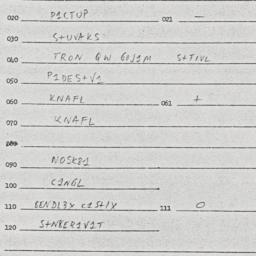 020 D1CTUP 021 —
030 S+UVAKS
040 TRON QW GOJ1M S+TIVL
050 P1DES+V1
060 KNAFL 061 +
070 KNAFL
080
090 NOSK81
100 C1NGL
110 EENDL3X C1S+/X 111 O
120 S+NKER1V1T